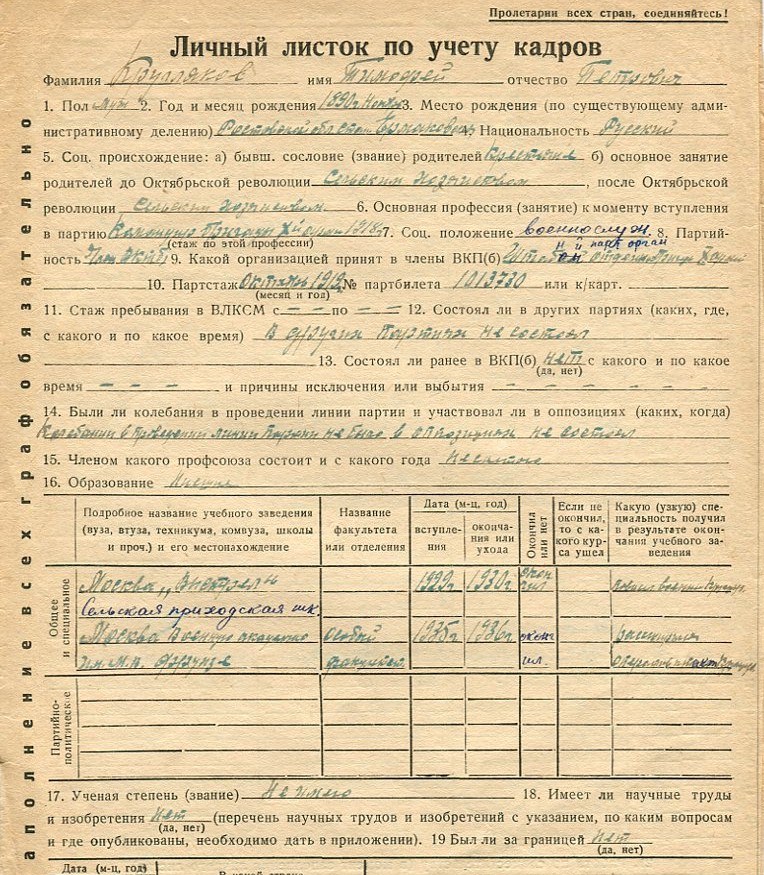 Пролетарии всех стран, соединяйтесь!
Личный листок по учету кадров
Фамилия Кругляков имя Тимофей отчество Петрович
1. Пол муж 2. Год и месяц рождения 1890 г. 3. Место рождения (по существующему адми-
нистративному делению) Ростовской области 4. Национальность Русский
5. Соц. происхождение: а) бывш. сословие (звание) родителей б) основное занятие
родителей до Октябрьской революции Сельским хозяйством, после Октябрьской
революции Сельским хозяйством 6. Основная профессия (занятие) к моменту вступления
в партию 7. Соц. положение военнослуж. 8. Партий-
(стаж по этой профессии)
ность 9. Какой организацией принят в члены ВКП(б)
10. Партстаж Октябрь 1919 № партбилета 1013730 или к/карт.
(месяц и год)
11. Стаж пребывания в ВЛКСМ с – – по – – 12. Состоял ли в других партиях (каких, где,
с какого и по какое время) В других партиях не состоял
13. Состоял ли ранее в ВКП(б) нет с какого и по какое
(да, нет)
время – – – и причины исключения или выбытия – – – – – –
14. Были ли колебания в проведении линии партии и участвовал ли в оппозициях (каких, когда)
Колебании в проведении линии партии не было в оппозиции не состоял
15. Членом какого профсоюза состоит и с какого года
16. Образование
Подробное название учебного заведения (вуза, втуза, техникума, комвуза, школы и проч.) и его местонахождение
Название факультета или отделения
Дата (м-ц, год)
вступления
окончания или ухода
Окончил или нет
Если не окончил, то с какого курса ушел
Какую (узкую) специальность получил в результате окончания учебного заведения
Общее и специальное
Москва „Выстрел" 1929 г 1930 г. окончил
Сельская приходская шк.
Москва Военную академию Особый 1935 г 1936 г. окон-
им. М.В. Фрунзе факультет чил.
Партийно-политическое
17. Ученая степень (звание) Не имею 18. Имеет ли научные труды
и изобретения Нет (перечень научных трудов и изобретений с указанием, по каким вопросам
(да, нет)
и где опубликованы, необходимо дать в приложении). 19 Был ли за границей Нет
(да, нет)
Дата (м-ц, год)
В какой стране
аполнение всех граф обязательно